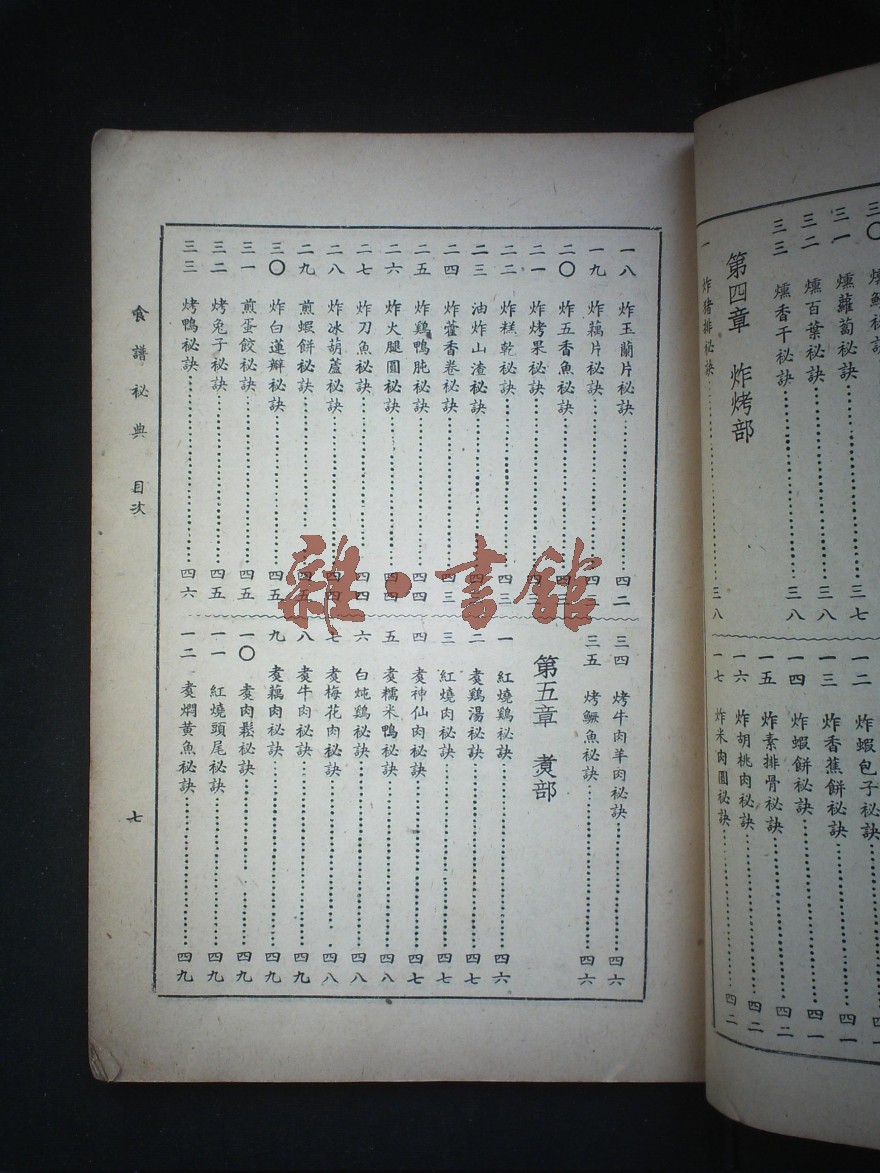 三一 燻蘿蔔秘訣 三七
三二 燻百葉秘訣 三八
三三 燻香干秘訣 三八
第四章 炸烤部
一 炸猪排秘訣 三八
一二 炸蝦包子秘訣
一三 炸香蕉餅秘訣 四一
一四 炸蝦餅秘訣 四一
一五 炸素排骨秘訣 四二
一六 炸胡桃肉秘訣 四二
一七 炸米肉圓秘訣 四二
一八 炸玉蘭片秘訣 四二
一九 炸藕片秘訣 四三
二〇 炸五香魚秘訣 四三
二一 炸烤果秘訣 四三
二二 炸糕乾秘訣 四三
二三 油炸山渣秘訣
二四 炸藿香卷秘訣 四三
二五 炸鷄鴨肫秘訣 四四
二六 炸火腿圓秘訣 四四
二七 炸刀魚秘訣 四四
二八 炸冰葫蘆秘訣 四四
二九 煎蝦餅秘訣 四五
三〇 炸白蓮瓣秘訣 四五
三一 煎蛋餃秘訣 四五
三二 烤兔子秘訣 四五
三三 烤鴨秘訣 四六
三四 烤牛肉羊肉秘訣 四六
三五 烤鱖魚秘訣 四六
第五章 煑部
一 紅燒鷄秘訣 四六
二 煑鷄湯秘訣 四七
三 紅燒肉秘訣 四七
四 煑神仙肉秘訣 四七
五 煑糯米鴨秘訣 四八
六 白炖鷄秘訣 四八
七 煑梅花肉秘訣 四八
八 煑牛肉秘訣 四九
九 煑藕肉秘訣 四九
一〇 煑肉鬆秘訣 四九
一一 紅燒頭尾秘訣 四九
一二 煑燜黃魚秘訣 四九
食譜秘典 目次 七
雜·書館